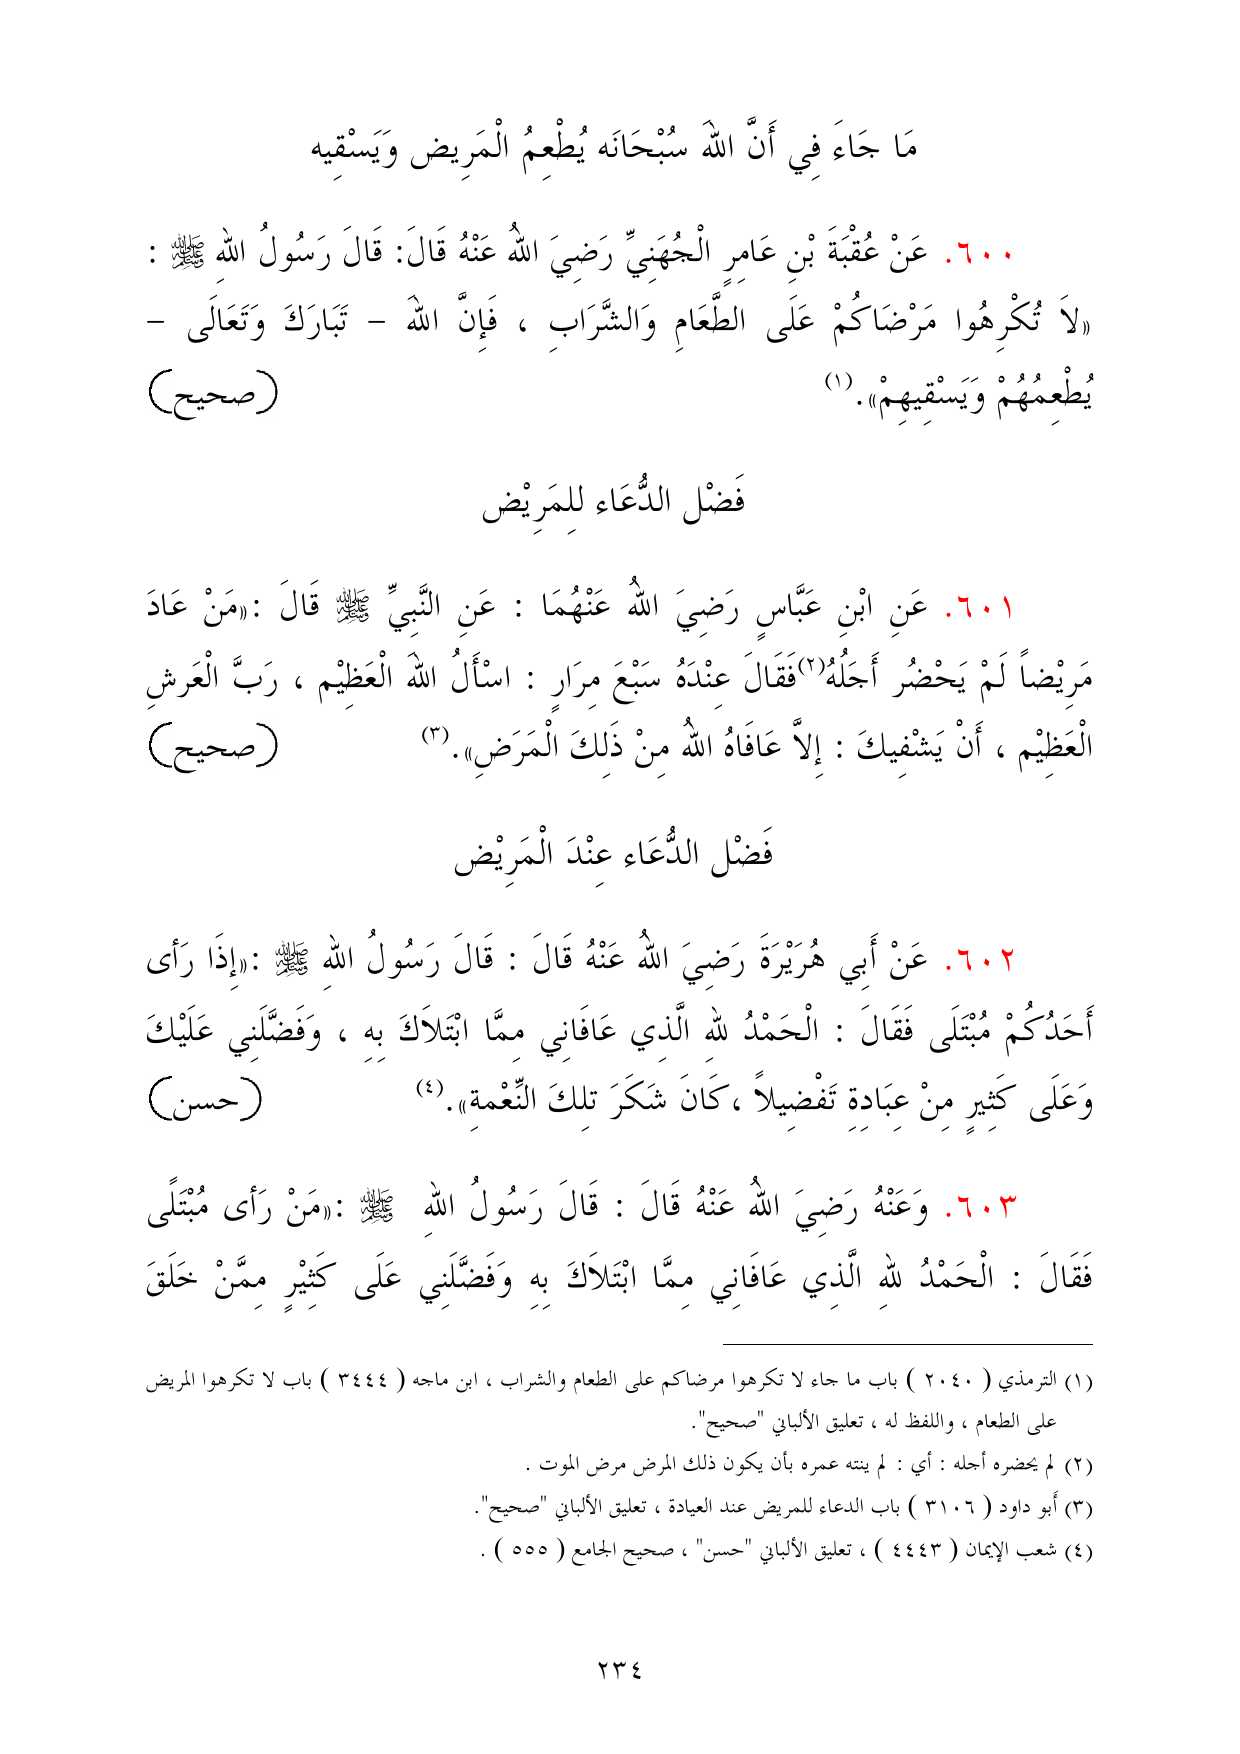 مَا جَاءَ فِي أَنَّ اللهَ سُبْحَانَه يُطْعِمُ الْمَرِيض وَيَسْقِيه
٦٠٠. عَنْ عُقْبَةَ بْنِ عَامِرٍ الْجُهَنِيِّ رَضِيَ اللهُ عَنْهُ قَالَ: قَالَ رَسُولُ اللهِ ﷺ :
«لاَ تُكْرِهُوا مَرْضَاكُمْ عَلَى الطَّعَامِ وَالشَّرَابِ ، فَإِنَّ اللهَ – تَبَارَكَ وَتَعَالَى –
يُطْعِمُهُمْ وَيَسْقِيهِمْ».(١) (صحيح)
فَضْل الدُّعَاء لِلمَرِيْض
٦٠١. عَنِ ابْنِ عَبَّاسٍ رَضِيَ اللهُ عَنْهُمَا : عَنِ النَّبِيِّ ﷺ قَالَ :«مَنْ عَادَ
مَرِيْضاً لَمْ يَحْضُر أَجَلُهُ(٢)فَقَالَ عِنْدَهُ سَبْعَ مِرَارٍ : اسْأَلُ اللهَ الْعَظِيْم ، رَبَّ الْعَرشِ
الْعَظِيْم ، أَنْ يَشْفِيكَ : إِلاَّ عَافَاهُ اللهُ مِنْ ذَلِكَ الْمَرَضِ».(٣) (صحيح)
فَضْل الدُّعَاء عِنْدَ الْمَرِيْض
٦٠٢. عَنْ أَبِي هُرَيْرَةَ رَضِيَ اللهُ عَنْهُ قَالَ : قَالَ رَسُولُ اللهِ ﷺ :«إِذَا رَأى
أَحَدُكُمْ مُبْتَلَى فَقَالَ : الْحَمْدُ للهِ الَّذِي عَافَانِي مِمَّا ابْتَلاَكَ بِهِ ، وَفَضَّلَنِي عَلَيْكَ
وَعَلَى كَثِيرٍ مِنْ عِبَادِةِ تَفْضِيلاً ،كَانَ شَكَرَ تلِكَ النِّعْمةِ».(٤) (حسن)
٦٠٣. وَعَنْهُ رَضِيَ اللهُ عَنْهُ قَالَ : قَالَ رَسُولُ اللهِ ﷺ :«مَنْ رَأى مُبْتَلًى
فَقَالَ : الْحَمْدُ للهِ الَّذِي عَافَانِي مِمَّا ابْتَلاَكَ بِهِ وَفَضَّلَنِي عَلَى كَثِيْرٍ مِمَّنْ خَلَقَ
(١) الترمذي ( ٢٠٤٠ ) باب ما جاء لا تكرهوا مرضاكم على الطعام والشراب ، ابن ماجه ( ٣٤٤٤ ) باب لا تكرهوا المريض
على الطعام ، واللفظ له ، تعليق الألباني "صحيح".
(٢) لم يحضره أجله : أي : لم ينته عمره بأن يكون ذلك المرض مرض الموت .
(٣) أَبو داود ( ٣١٠٦ ) باب الدعاء للمريض عند العيادة ، تعليق الألباني "صحيح".
(٤) شعب الإيمان ( ٤٤٤٣ ) ، تعليق الألباني "حسن" ، صحيح الجامع ( ٥٥٥ ) .
٢٣٤